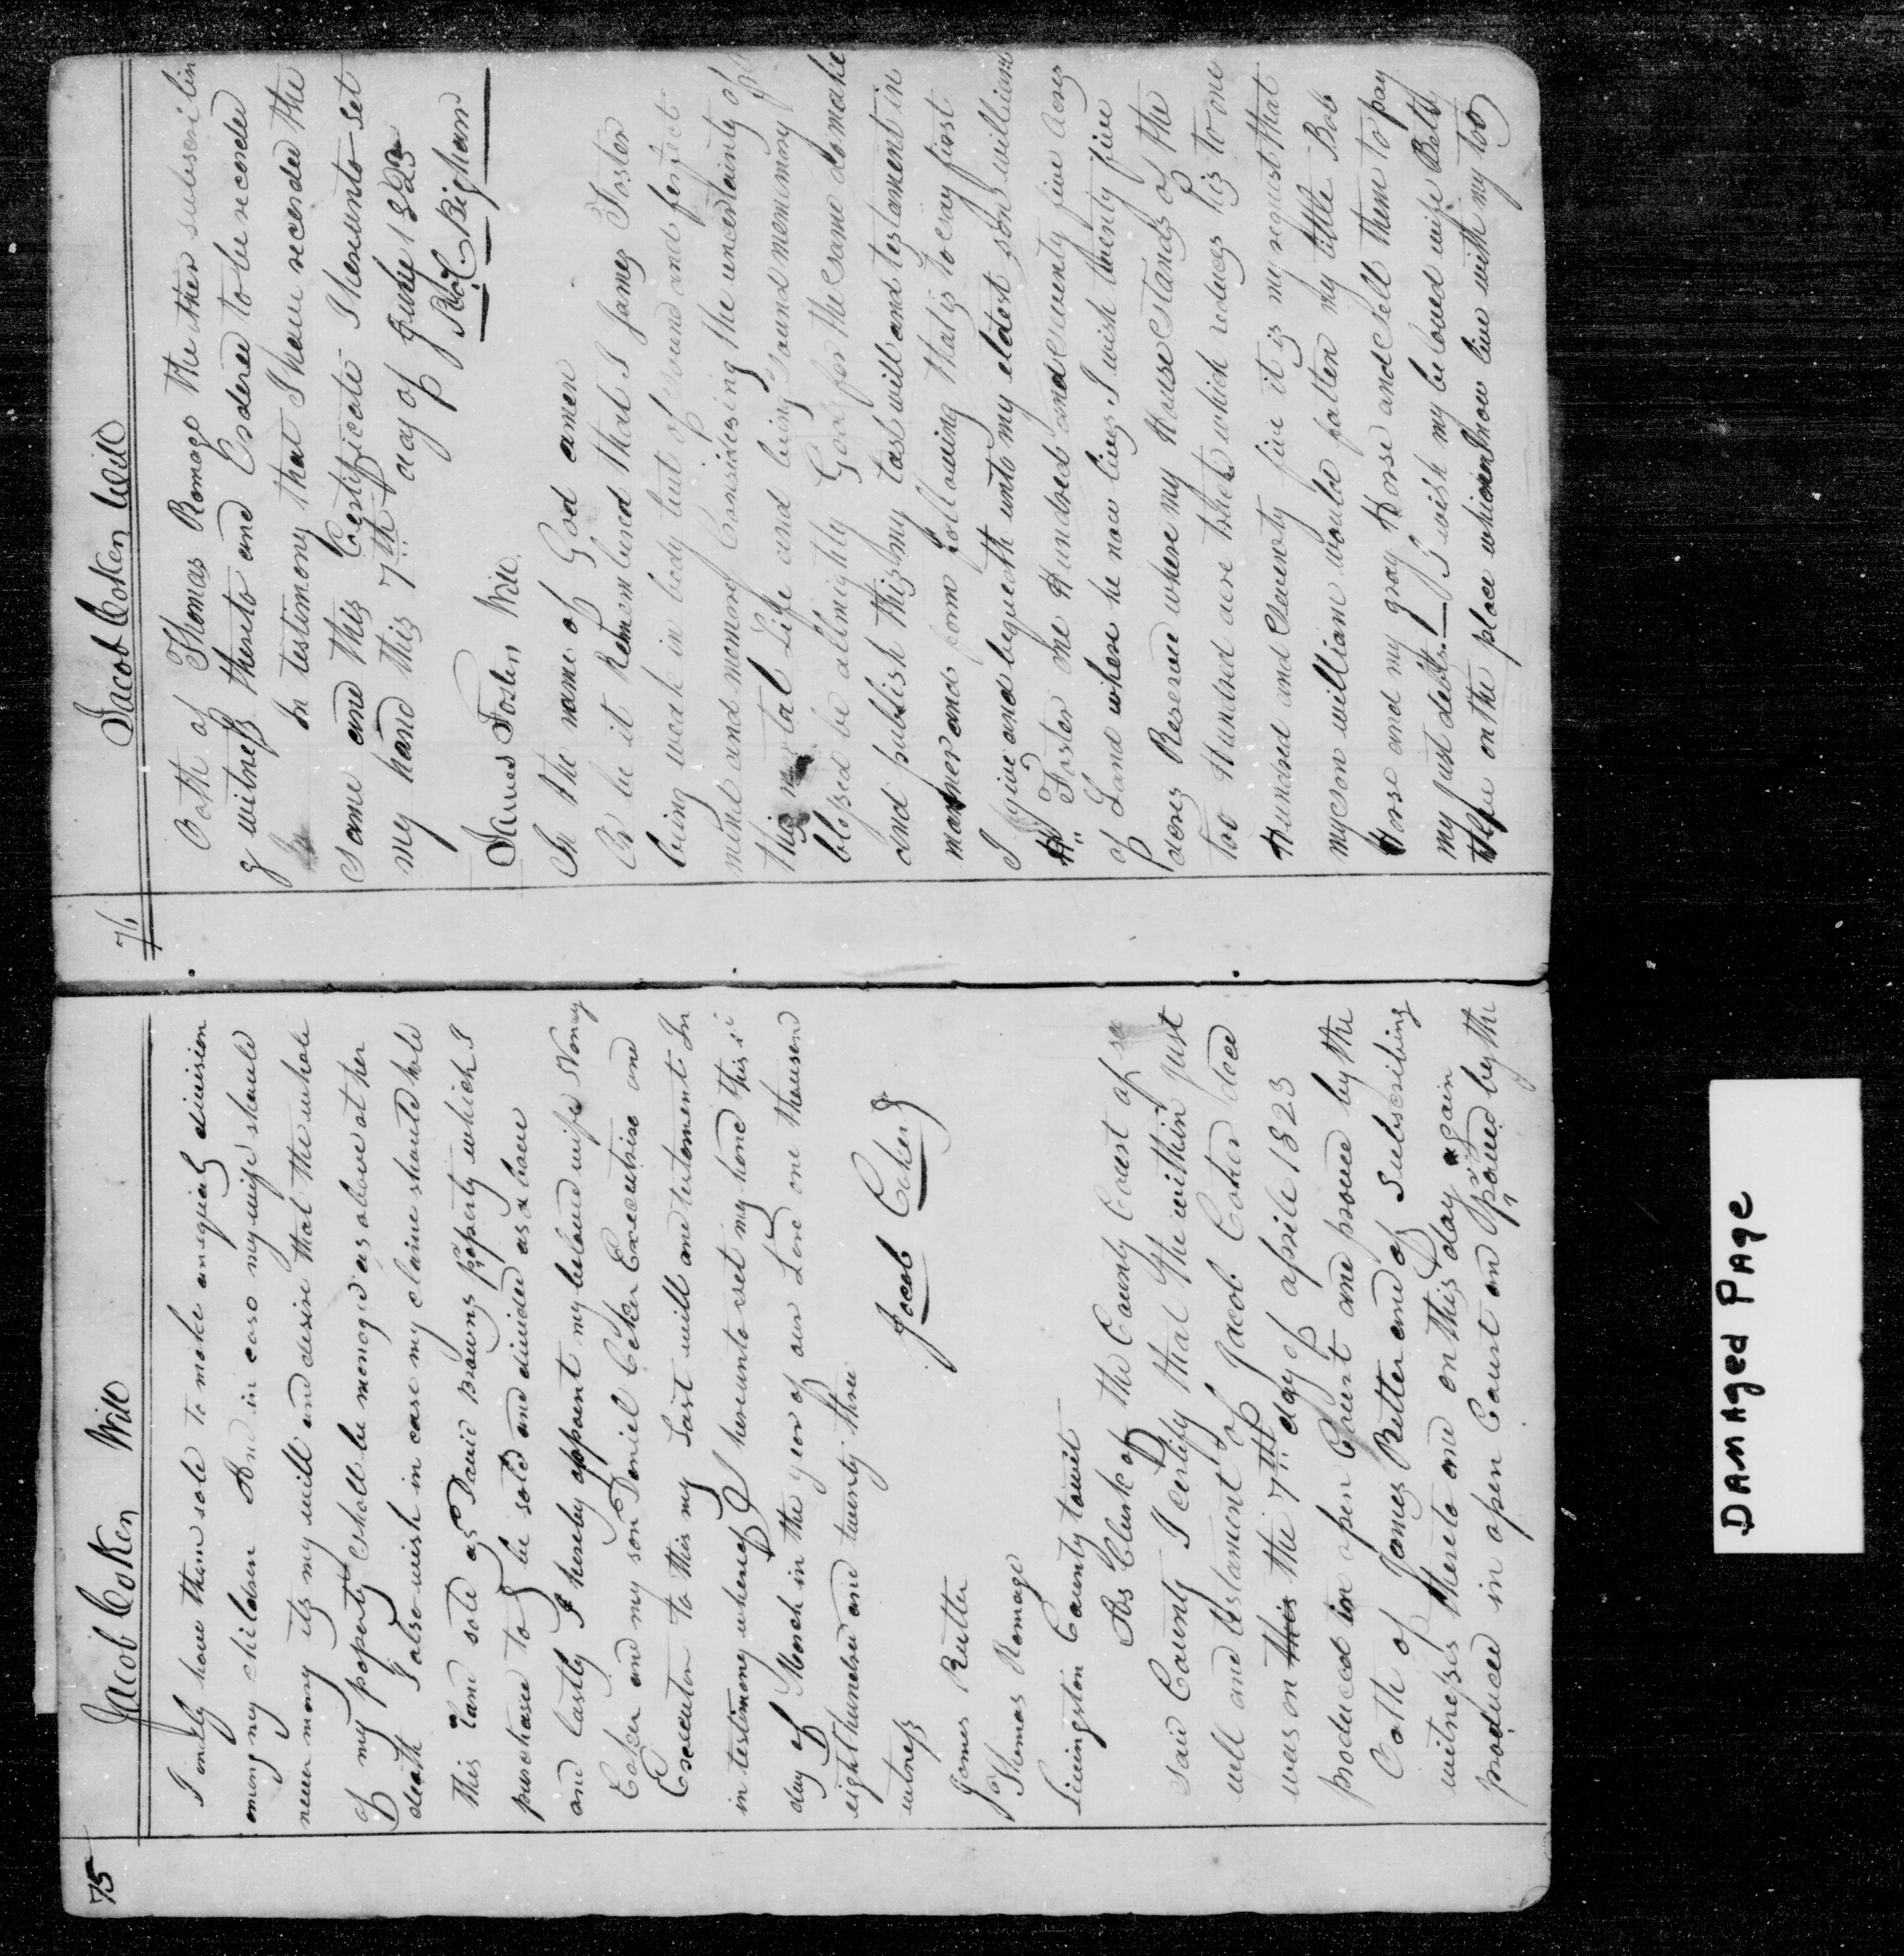 75
Jacob Coker Will
I only have them sole to make an equiel division
among my children And in case my wife should
never mary its my will and desire that the whole
of my poperty shall be menaged as above at her
death I also wish in case my claime should hold
this land sold as David Browns property which I
purchased to be sold and divided as above
and lastly I hereby appoint my beloved wife Noncy
Coker and my son Deniel Coker Executrise and
Executor to this my Last will and testoment In
in testimony whereof I hereunto set my hand this
day of March in the yeer of our Lord one thousend
eight hundred and twenty three
witness
Jacob Coker
James Rutter
Thomas Romage
Livingston County towit
As Clerk of the County Court of
said County I certify that the within just
will and testament of Jacob Coker deced
was on this the 7th day of aprile 1823
produced in open Court and proved by the
Oath of James Rutter one of Subscribing
witnesses thereto and on this day again
produced in open Court and proved by the
76
Jacob Coker Will
Oath of Thomas Romage the other subscribin
g witness thereto and Ordered to be recorded
In testimony that I have recorded the
same and this Certificate I hereunto set
my hand this 7th day of June 1823
James Foster Will
In the name of God amen
Or be it Remembered that I James Foster
being weak in body but of sound and perfect
mind and memory Considering the uncertainty of
this mortal Life and being sound memmory
blessed be allmighty God for the same do make
and publish this my last will and testament in
manner and form following that is to say first
I give and bequeth unto my eldest son william
H Foster one Hundred and seventy five acres
of Land where he now lives I wish twenty five
acres Reserved where my House stands of the
too Hundred acre tract which reduces his to one
Hundred and seventy five it is my request that
my son william would fatten my little Bob
Horse and my gray Horse and sell them to pay
my just debts I wish my beloved wife Bettey
on the place which now live with my too
DAMAged PAge